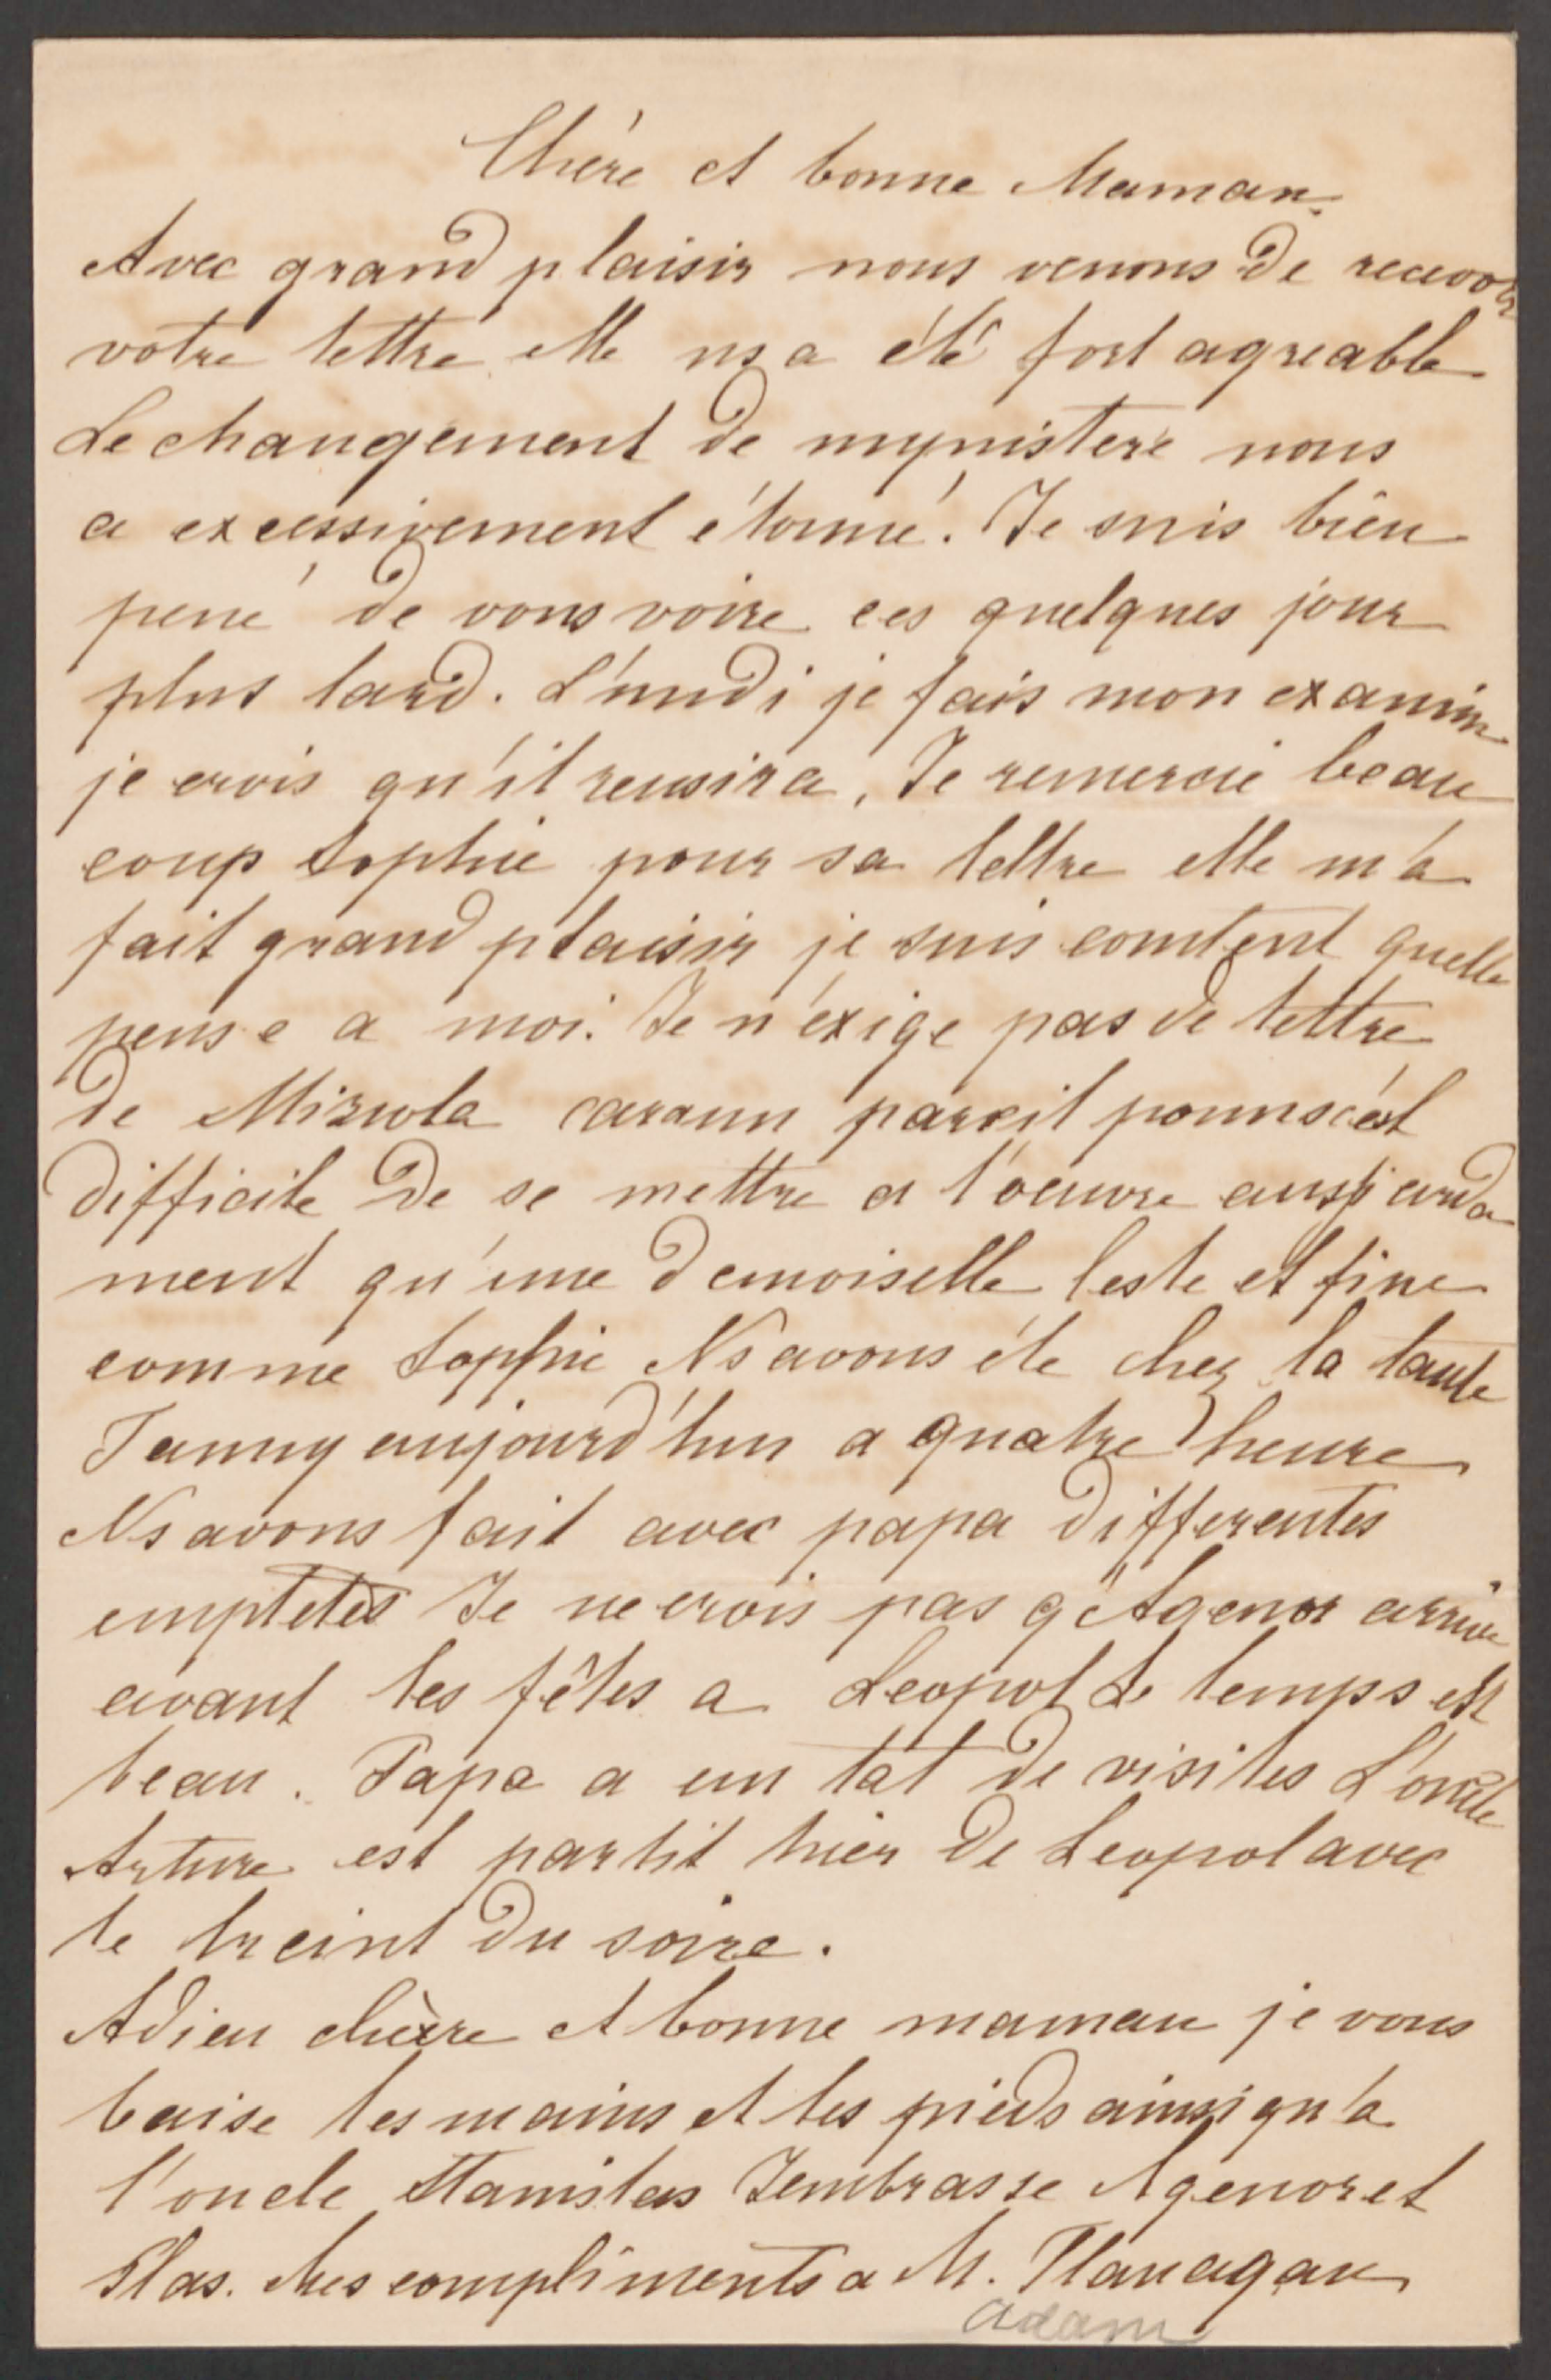 Chère et bonne Maman.
Avec grand plaisir nous venons de recevoir
votre lettre elle ns a été fort agreable
Le changement de mynistere nous
a excessivement étonné. Je suis bien
pené de vous voire ces quelques jour
plus tard. L'undi je fais mon examin
je crois qu'il reusira, Je remercie beau
coup Sophie pour sa lettre elle m'a
fait grand plaisir je suis contént quelle
pense a moi. Je n'éxige pas de lettre
de Miziola car a un pareil pouns c'est
difficile de se mettre a l'oeuvre aussi arda
ment qu'une demoiselle leste et fine
comme Sophie Ns avons éte chez la tante
Fanny aujourd'hui a quatre heure
Ns avons fait avec papa differentes
empletes Je ne crois pas q'Agenor arrive
avant les fêtes a Leopol Le temps est
beau. Papa a un tat de visites L'oncle
Arture est partit hier de Leopol avec
le treint du soire.
Adieu chère et bonne maman je vous
baise les mains et les pieds ainsi qu'a
l'oncle Stanislas J'embrasse Agenor et
Stas. Mes compliments a M. Flanagan
adam